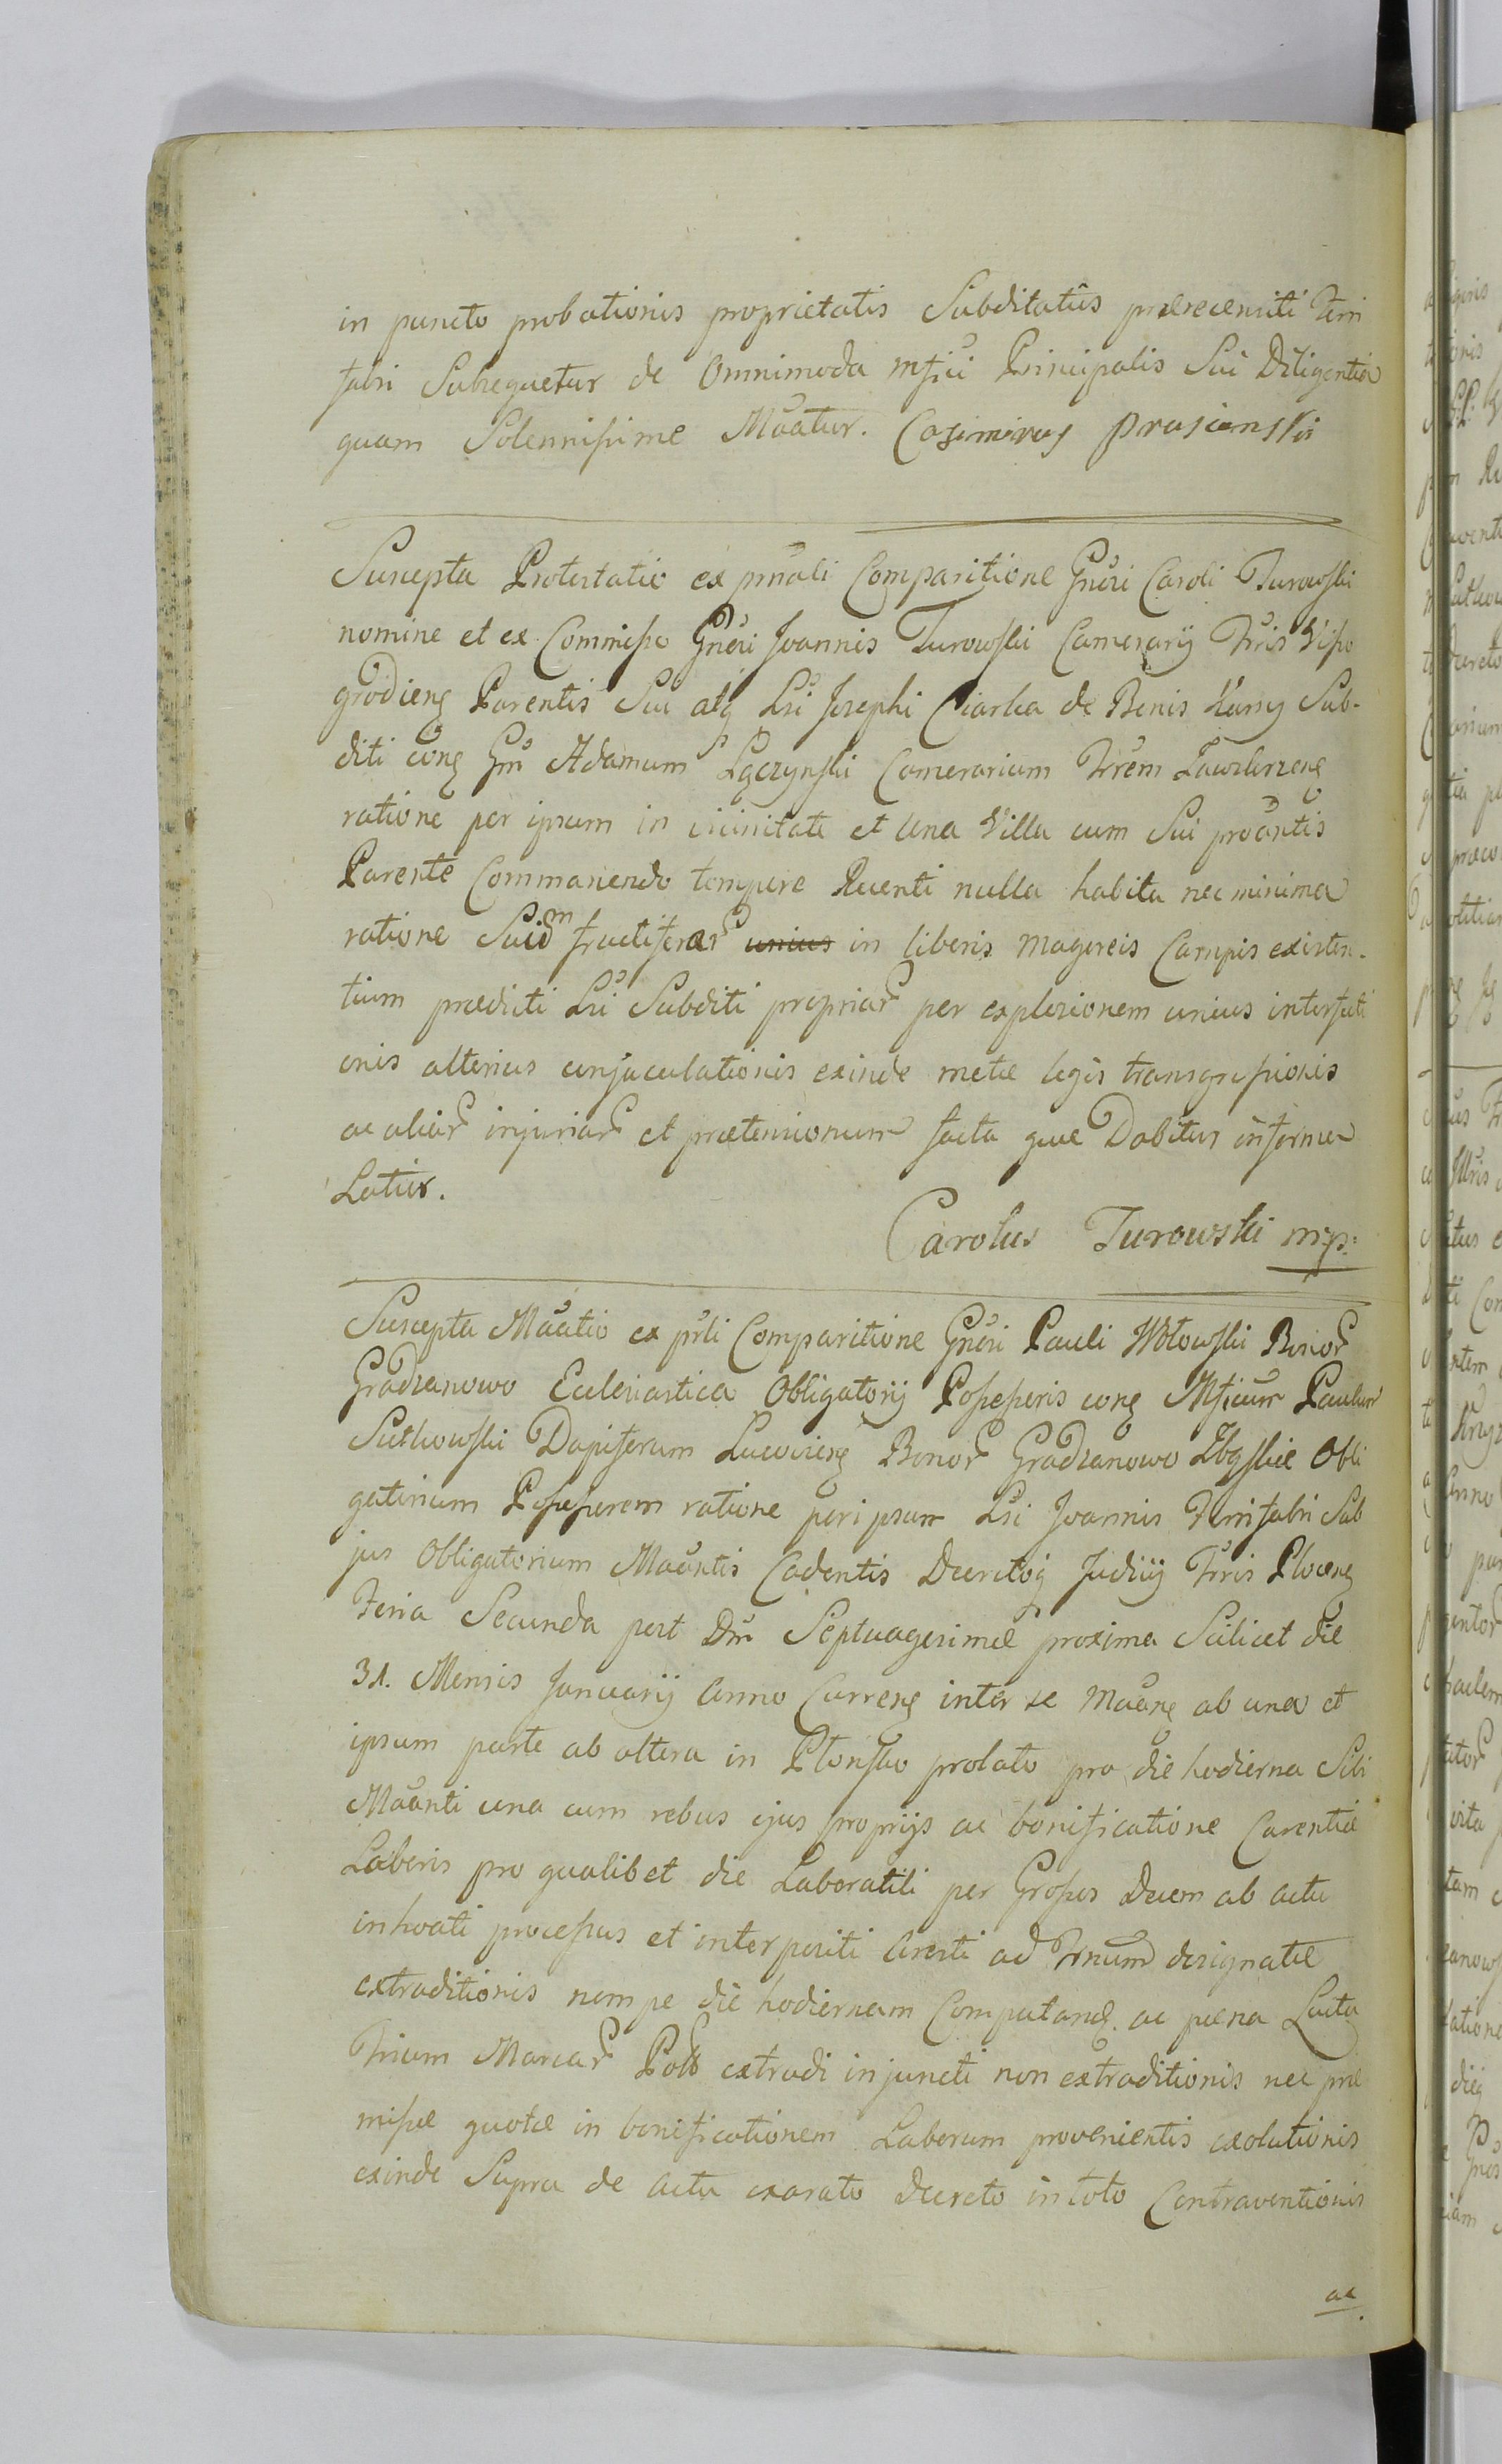 in puncto probationis proprietatis Subditatûs prærecensiti Ferri
fabri Subsequetur de Omnimoda mfici Principalis Sui Diligentia
quam Solennissime Maatur. Casimirus Prusienski
Suscepta Protestatio ex prnali Comparitione Gnosi Caroli Turowski
nomine et ex Commisso Gnosi Joannis Turowski Camerarij Trris Viszo
grodieng Parentis Sui atq Lsi Josephi Ciarka de Bonis Subditi
diti cong Gm Adamum Łączynski Camerarium Trrem
ratione per ipsum in vicinitate et Una Villa cum Sui proantis
Parente Commanendo tempore Recenti nulla habita nec minima
ratione Suum fructiferar unius in liberis magereis Campis existen-
tium prædicti Lsi Subditi propriar per explosionem unius interfecti
onis alterius conjaculationis exinde metæ legis transgressionis
ac aliar injuriar et prætensionum facta quæ Dabitur in forma
Latior.
Carolus Turowski mp:
Suscepta Maatio ex prli Comparitione Gnosi Pauli Wołowski Bonor
Gradzanowo Ecclesiastica Obligatorij Possessoris cong Mficum Paulum
Sutkowski Dapiferum Bonor Gradzanowo Zbęskie Obli
gatorium Possessorem ratione per ipsum Lsi Joannis Ferrifabri Sub
jus Obligatorium Maantis Cadentis Decretoq Judicij Trris Ploceng
Feria Secunda post Dm Septuagesimæ proxima Scilicet die
31. Mensis Januarij Anno Curreng inter se Maang ab una et
ipsum parte ab altera in Płonsko prolato pro die hodierna Sibi
Maanti una cum rebus ejus proprijs ac bonificatione Carentiæ
Laboris pro qualibet die Laboratili per Grossos Decem ab actu
inhoati processus et interpositi Aresti ad Trnum designatæ
extraditionis nempe die hodiernam Computand. ac pæna Lucta
Trium Marcar Poll extradi injuncti non extraditionis nec præ
missæ quotæ in bonificationem Laborum provenientis exolutionis
exinde Supra de actu exarato Decreto in toto Contraventionis
ac